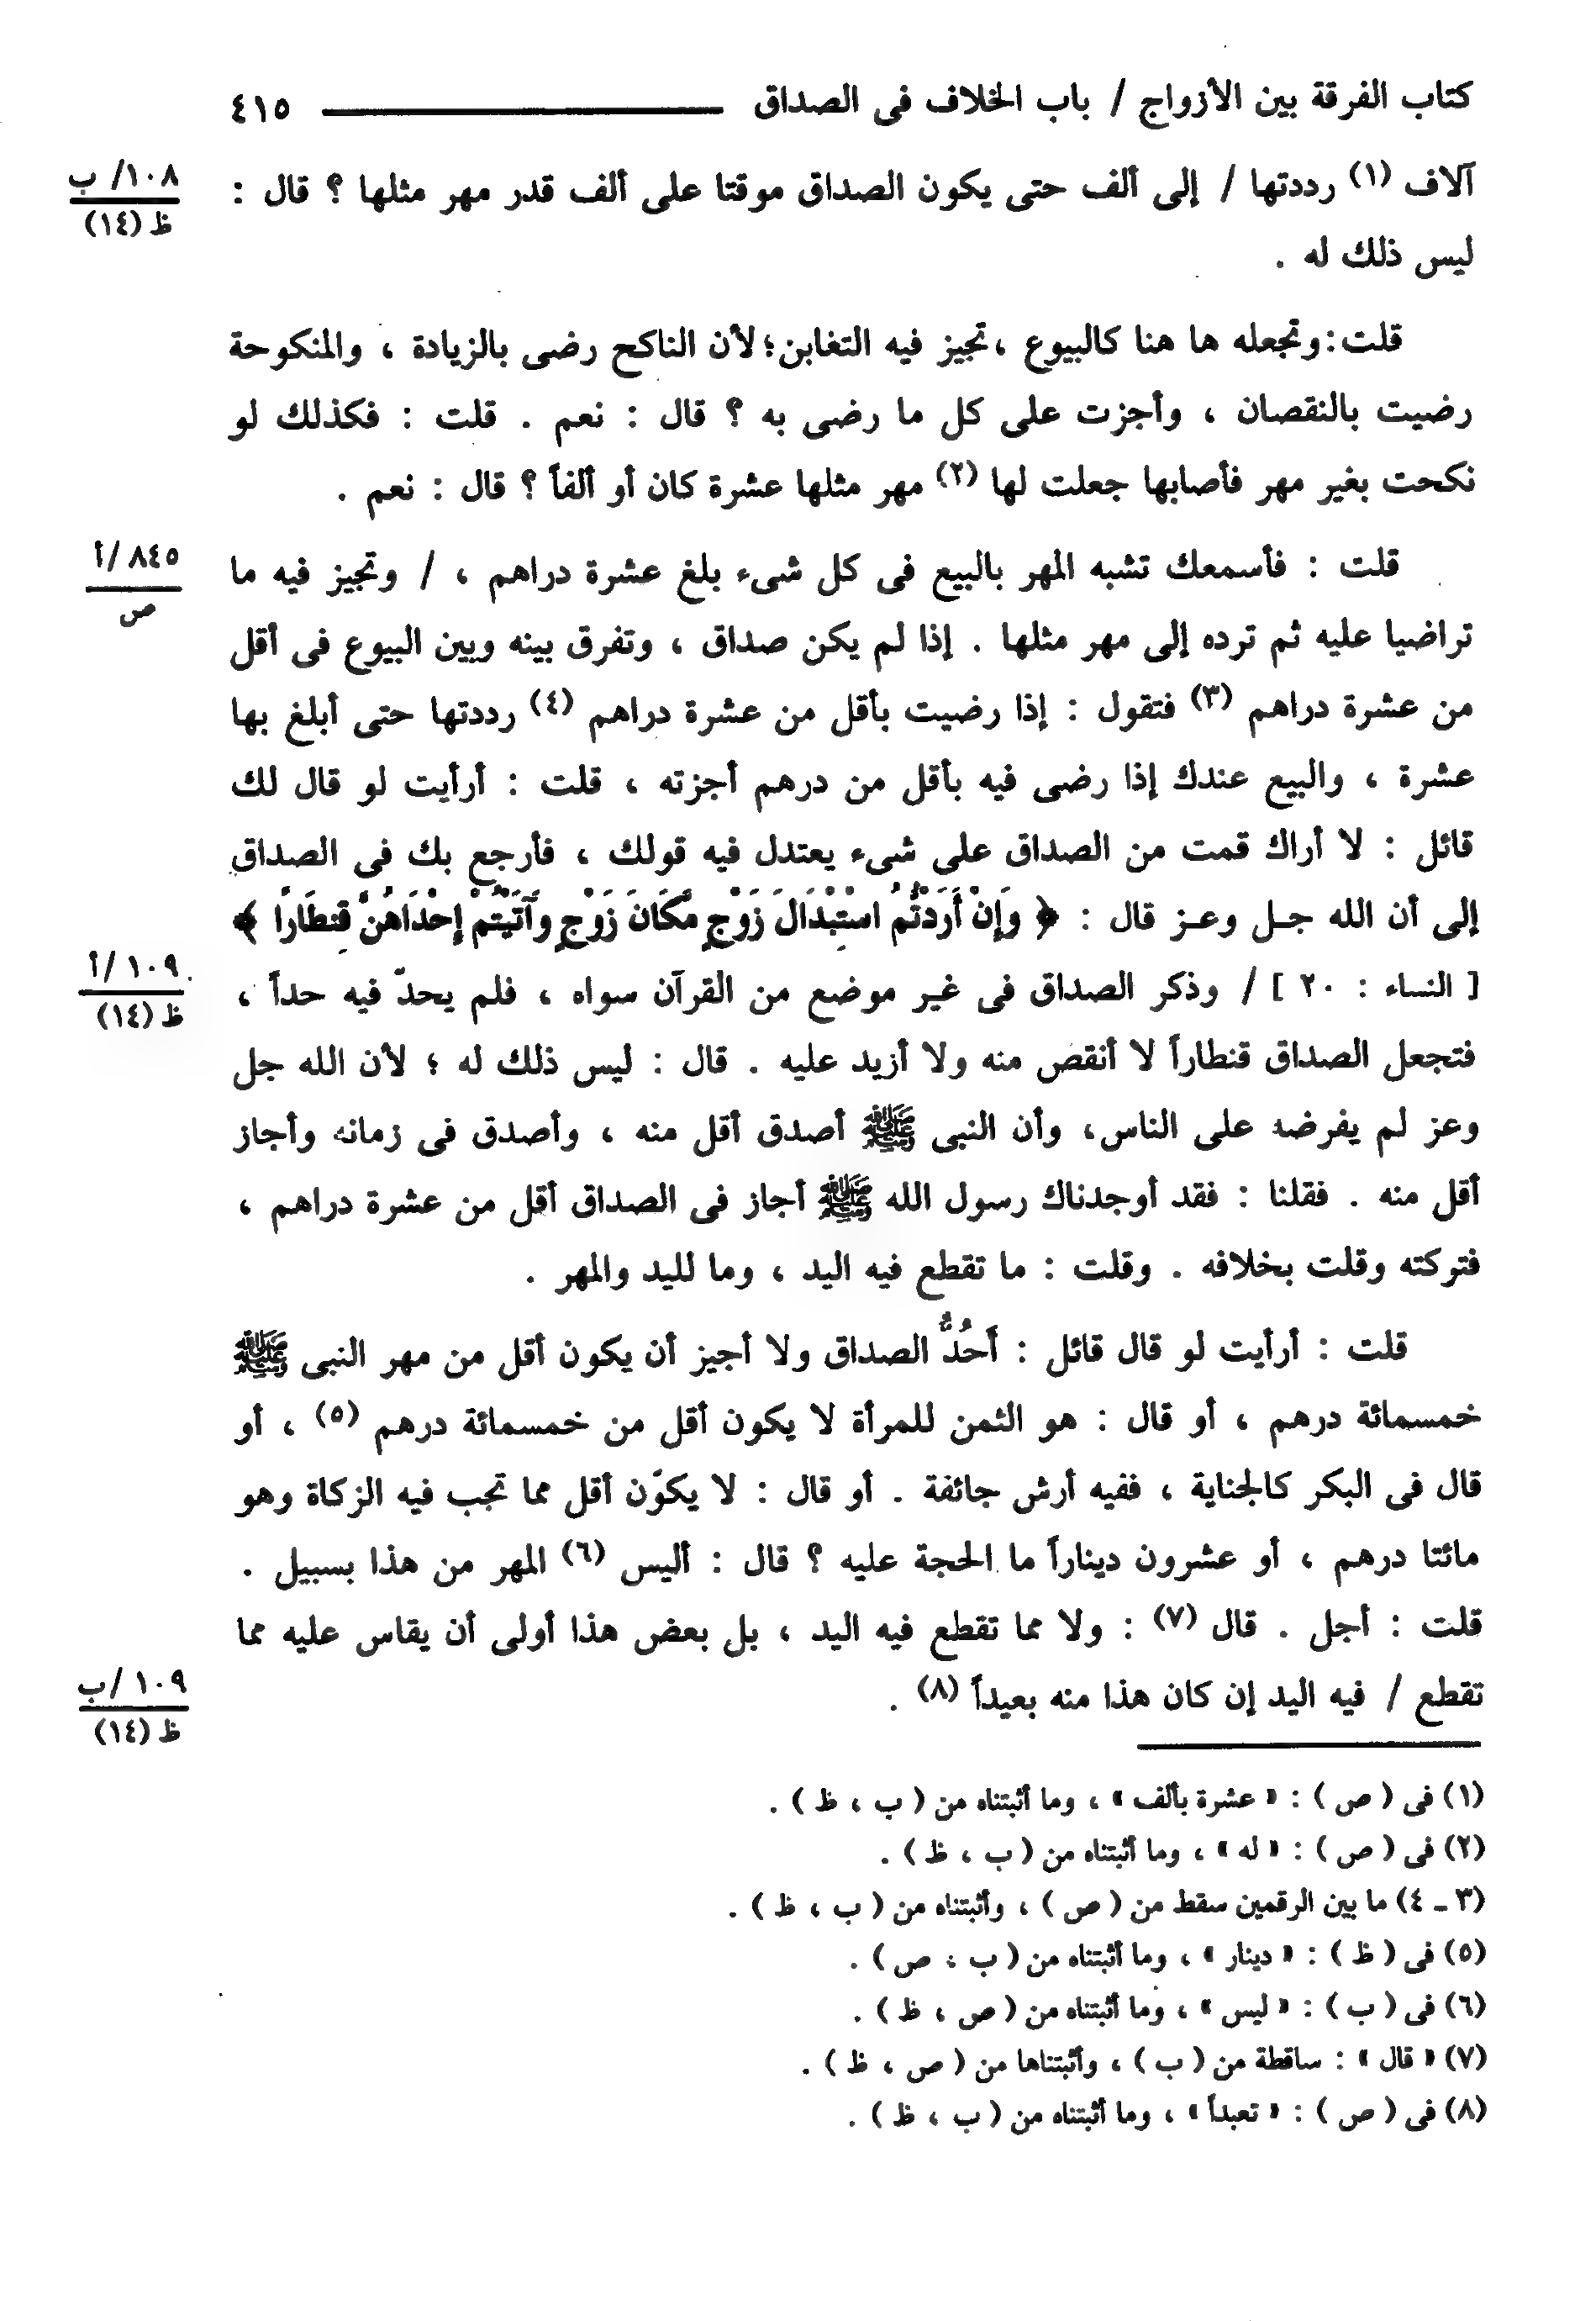 كتاب الفرقة بين الأزواج / باب الخلاف فى الصداق ــــــــــــــــ ٤١٥
آلاف (١) رددتها / إلى ألف حتى يكون الصداق موقتا على ألف قدر مهر مثلها ؟ قال :
١٠٨/ ب
ظ (١٤)
ليس ذلك له .
قلت : وتجعله ها هنا كالبيوع ، تجيز فيه التغابن ؛ لأن الناكح رضى بالزيادة ، والمنكوحة
رضيت بالنقصان ، وأجزت على كل ما رضى به ؟ قال : نعم . قلت : فكذلك لو
نكحت بغير مهر فأصابها جعلت لها (٢) مهر مثلها عشرة كان أو ألفاً ؟ قال : نعم .
قلت : فأسمعك تشبه المهر بالبيع فى كل شىء بلغ عشرة دراهم ، / وتجيز فيه ما
٨٤٥ /أ
ص
تراضيا عليه ثم ترده إلى مهر مثلها . إذا لم يكن صداق ، وتفرق بينه وبين البيوع فى أقل
من عشرة دراهم (٣) فتقول : إذا رضيت بأقل من عشرة دراهم (٤) رددتها حتى أبلغ بها
عشرة ، والبيع عندك إذا رضى فيه بأقل من درهم أجزته ، قلت : أرأيت لو قال لك
قائل : لا أراك قمت من الصداق على شىء يعتدل فيه قولك ، فأرجع بك فى الصداق
إلى أن الله جل وعز قال : ﴿ وَإِنْ أَرَدْتُمُ اسْتِبْدَالَ زَوْجٍ مَّكَانَ زَوْجٍ وَآتَيْتُمْ إِحْدَاهُنَّ قِنطَارًا ﴾
[ النساء : ٢٠ ] / وذكر الصداق فى غير موضع من القرآن سواه ، فلم يحدّ فيه حداً ،
١٠٩ /أ
ظ (١٤)
فتجعل الصداق قنطاراً لا أنقص منه ولا أزيد عليه . قال : ليس ذلك له ؛ لأن الله جل
وعز لم يفرضه على الناس، وأن النبى ﷺ أصدق أقل منه ، وأصدق فى زمانه وأجاز
أقل منه . فقلنا : فقد أوجدناك رسول الله ﷺ أجاز فى الصداق أقل من عشرة دراهم ،
فتركته وقلت بخلافه . وقلت : ما تقطع فيه اليد ، وما لليد والمهر .
قلت : أرأيت لو قال قائل : أَحُدُّ الصداق ولا أجيز أن يكون أقل من مهر النبى ﷺ
خمسمائة درهم ، أو قال : هو الثمن للمرأة لا يكون أقل من خمسمائة درهم (٥) ، أو
قال فى البكر كالجناية ، ففيه أرش جائفة . أو قال : لا يكوّن أقل مما تجب فيه الزكاة وهو
مائتا درهم ، أو عشرون ديناراً ما الحجة عليه ؟ قال : أليس (٦) المهر من هذا بسبيل .
قلت : أجل . قال (٧) : ولا مما تقطع فيه اليد ، بل بعض هذا أولى أن يقاس عليه مما
تقطع / فيه اليد إن كان هذا منه بعيداً (٨) .
١٠٩ /ب
ظ (١٤)
(١) فى ( ص ) : « عشرة بألف » ، وما أثبتناه من ( ب ، ظ ) .
(٢) فى ( ص ) : « له » ، وما أثبتناه من ( ب ، ظ ) .
(٣ ـ ٤) ما بين الرقمين سقط من ( ص ) ، وأثبتناه من ( ب ، ظ ) .
(٥) فى ( ظ ) : « دينار » ، وما أثبتناه من ( ب ، ص ) .
(٦) فى ( ب ) : « ليس » ، وما أثبتناه من ( ص ، ظ ) .
(٧) « قال » : ساقطة من ( ب ) ، وأثبتناها من ( ص ، ظ ) .
(٨) فى ( ص ) : « تعبداً » ، وما أثبتناه من ( ب ، ظ ) .